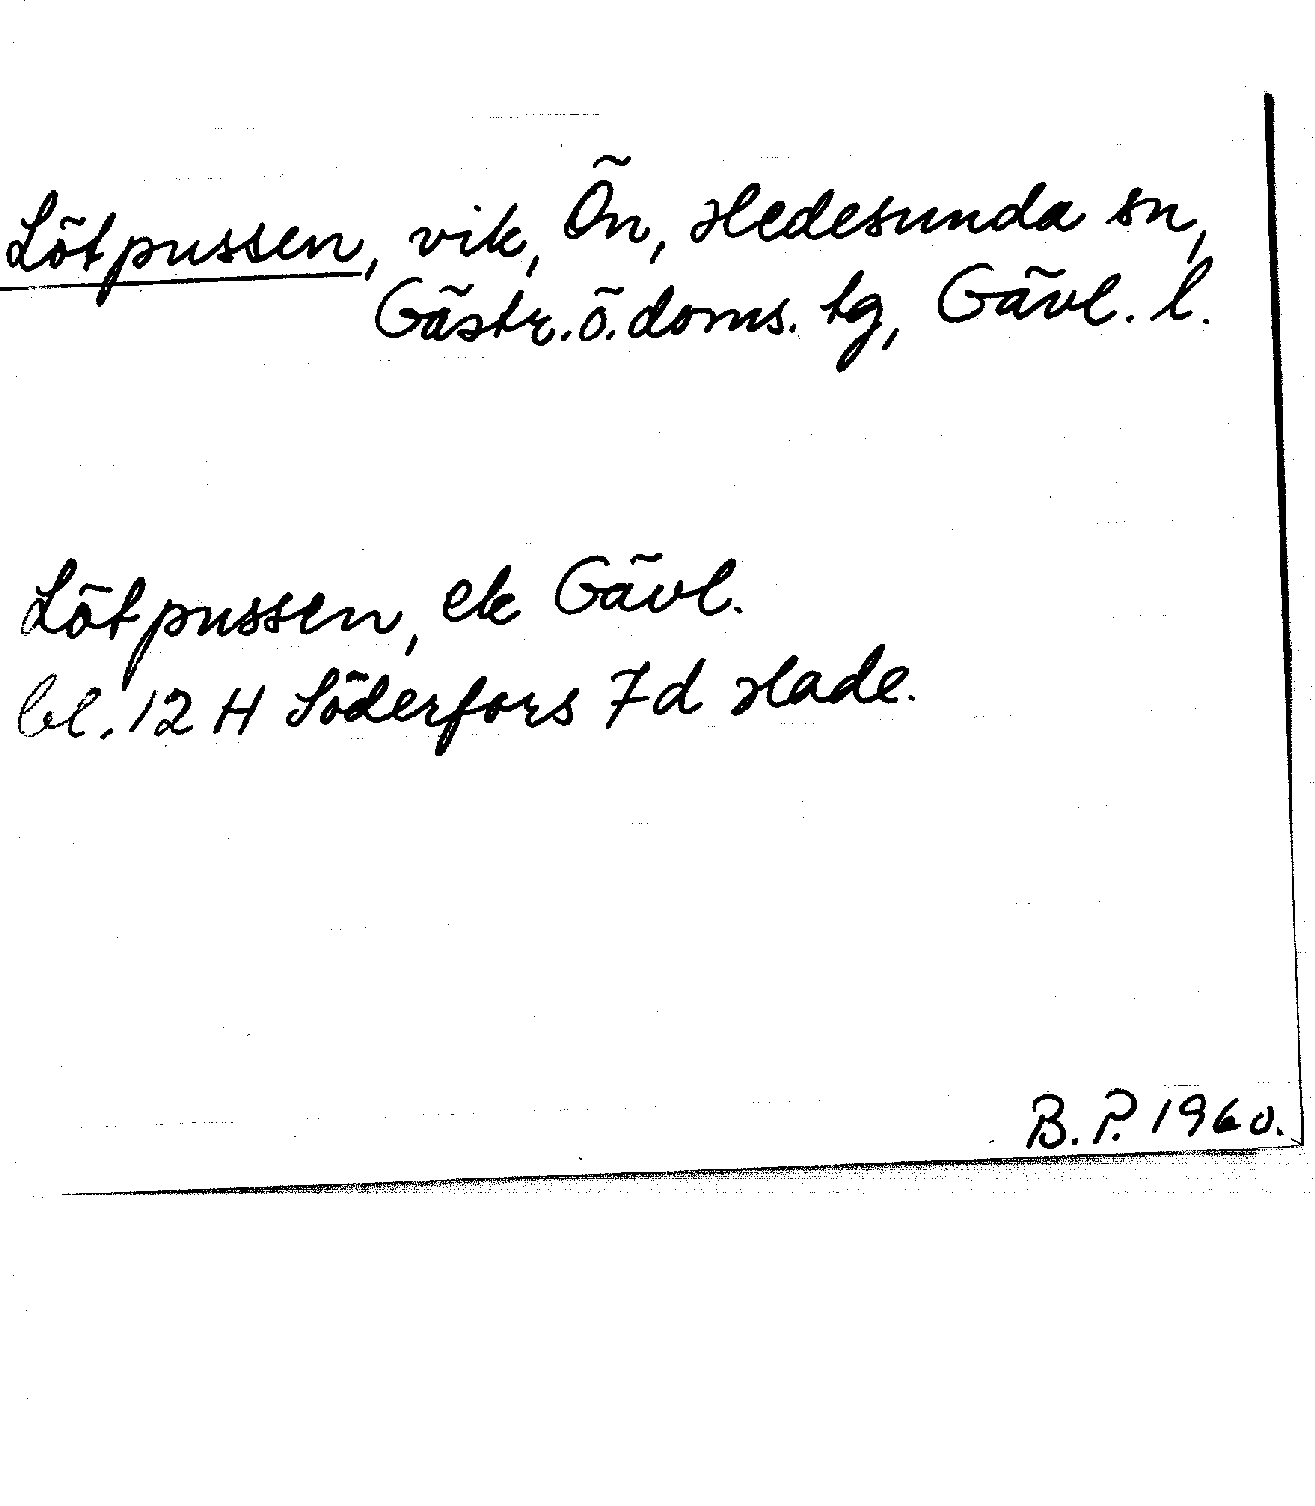 Lötpussen, vik, Ön, Hedesunda sn,
Gästr. ö. doms. tg, Gävl. l.
Lötpussen, ek Gävl.
bl. 12 H Söderfors 7d Hade.
B. P. 1960.